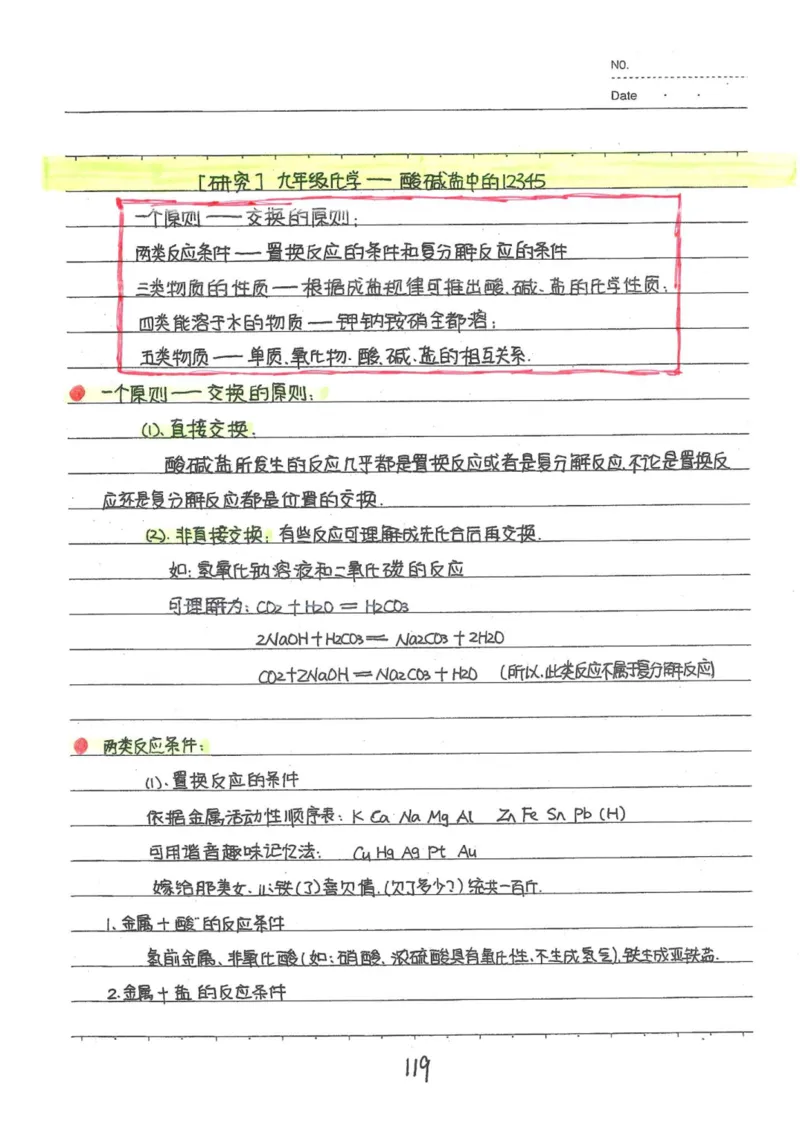 NO.
Date
[研究] 九年级化学 — 酸碱盐中的12345
一个原则 —— 交换的原则;
两类反应条件 — 置换反应的条件和复分解反应的条件
三类物质的性质 — 根据成盐规律可推出酸、碱、盐的化学性质;
四类能溶于水的物质 — 钾钠铵硝全都溶;
五类物质 — 单质、氧化物、酸、碱、盐的相互关系.
一个原则 —— 交换的原则:
(1)、直接交换:
酸碱盐所发生的反应几乎都是置换反应或者是复分解反应.不论是置换反
应还是复分解反应都是位置的交换.
(2). 非直接交换: 有些反应可理解成先化合后再交换.
如: 氢氧化钠溶液和二氧化碳的反应
可理解为: CO2 + H2O = H2CO3
2NaOH + H2CO3 = Na2CO3 + 2H2O
CO2+2NaOH = Na2CO3 + H2O (所以.此类反应不属于复分解反应)
两类反应条件:
(1)、置换反应的条件
依据金属活动性顺序表: K Ca Na Mg Al Zn Fe Sn Pb (H)
可用谐音趣味记忆法: Cu Hg Ag Pt Au
嫁给那美女、心铁(了)喜欠情,(欠了多少?)统共一百斤.
1、金属 + 酸 的反应条件
氢前金属、非氧化酸(如:硝酸、浓硫酸具有氧化性,不生成氢气).铁生成亚铁盐.
2.金属 + 盐 的反应条件
119